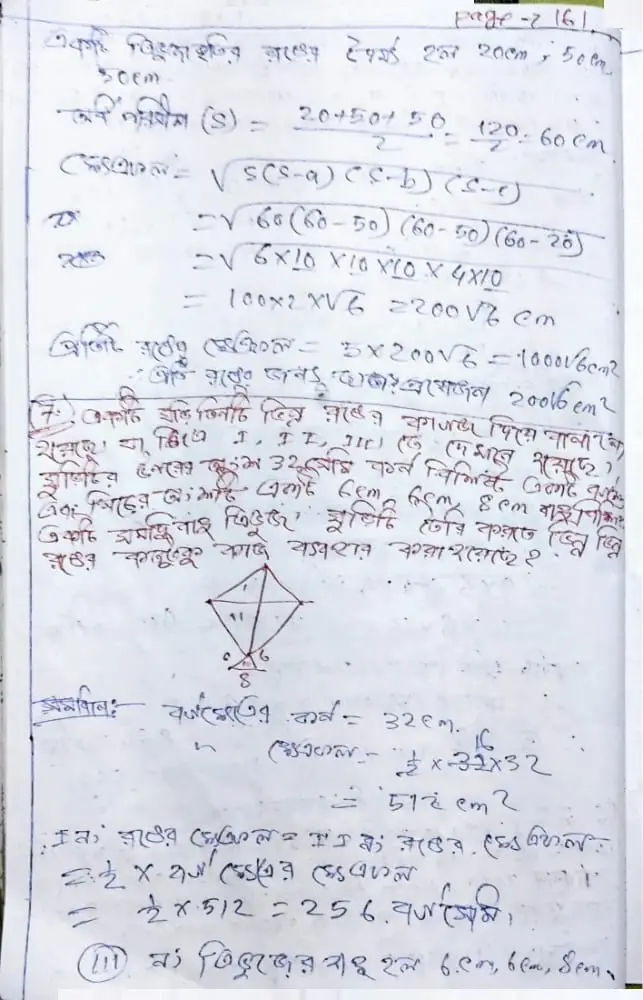 page - 7 (6)
একটি ত্রিভুজাকৃতির রঙের দৈর্ঘ্য হল 20cm, 50cm,
50cm
অর্ধ পরিসীমা (S) = 20+50+50/2 = 120/2 = 60 cm
ক্ষেত্রফল = √s(s-a) (s-b) (s-c)
= √60(60-50) (60-50) (60-20)
= √6×10 ×10 ×10 × 4×10
= 100×2×√6 = 200√6 cm
প্রতিটি রঙের ক্ষেত্রফল = 5×200√6 = 1000√6cm²
∴ প্রতি রঙের জন্য কাপড় প্রয়োজন 200√6 cm²
(7.) একটি ঘুড়ি তিনটি ভিন্ন রঙের কাগজ দিয়ে বানানো
হয়েছে। যা চিত্রে I, II, III তে দেখানো হয়েছে।
ঘুড়িটির উপরের অংশ 32 সেমি কর্ন বিশিষ্ট একটি বর্গ
এবং নিচের অংশটি একটি 6cm, 6cm, 8cm বাহু বিশিষ্ট
একটি সমদ্বিবাহু ত্রিভুজ। ঘুড়িটি তৈরি করতে ভিন্ন ভিন্ন
রঙের কতটুকু কাগজ ব্যবহার করা হয়েছে?
I
II
6 6
8
সমাধান:- বর্গক্ষেত্রের কর্ন = 32cm.
" ক্ষেত্রফল = ½ × 32×32
16
= 512 cm²
∴ I নং রঙের ক্ষেত্রফল = II নং রঙের ক্ষেত্রফল
= ½ × বর্গ ক্ষেত্রের ক্ষেত্রফল
= ½ × 512 = 256 বর্গসেমি।
(III) নং ত্রিভুজের বাহু হল 6cm, 6cm, 8cm.